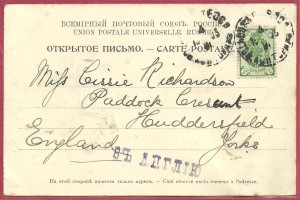 ВСЕМІРНЫЙ ПОЧТОВЫЙ СОЮЗЪ. РОССІЯ.
UNION POSTALE UNIVERSELLE. RUSSIE.
ОТКРЫТОЕ ПИСЬМО. — CARTE POSTALE.
Miss Cissie Richardson
Paddock Crescent
Huddersfield
England Yorks
ВЪ АНГЛІЮ
На этой сторонѣ пишется только адресъ. — Côté réservé exclusivement à l'adresse.